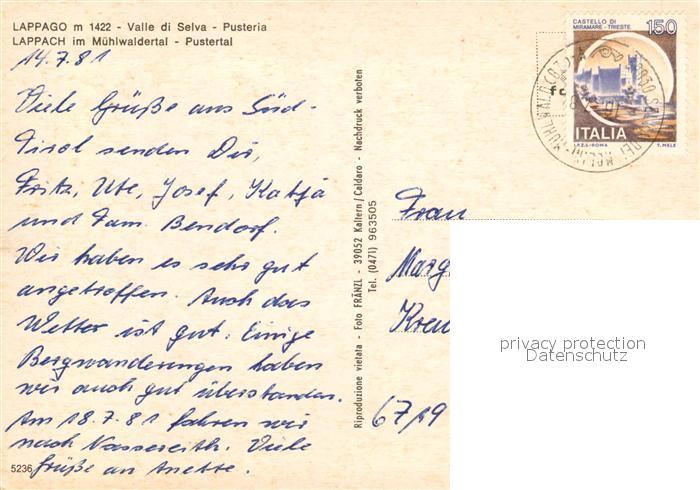 LAPPAGO m 1422 - Valle di Selva - Pusteria
LAPPACH im Mühlwaldertal - Pustertal
14.7.81
Viele Grüße aus Süd-
Tirol senden Dir,
Fritz, Ute, Josef, Katja
und Fam. Bendorf.
Wir haben es sehr gut
angetroffen. Auch das
Wetter ist gut. Einige
Bergwanderungen haben
wir auch gut überstanden.
Am 18.7.81 fahren wir
nach Nassereith. Viele
Grüße an Anette.
5236
Riproduzione vietata - Foto FRÄNZL - 39052 Kaltern/Caldaro - Nachdruck verboten
Tel. (0471) 963505
CASTELLO DI
MIRAMARE - TRIESTE
150
ITALIA
I.P.Z.S. - ROMA
T. MELE
Frau
Marg
Kreu
6719
privacy protection
Datenschutz